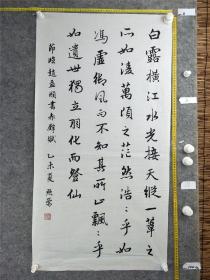 白露橫江水光接天縱一葦之
所如凌萬頃之茫然浩：乎如
馮虛御風而不知其所止飄：乎
如遺世獨立羽化而登仙
節臨趙孟頫書赤壁賦 乙未夏